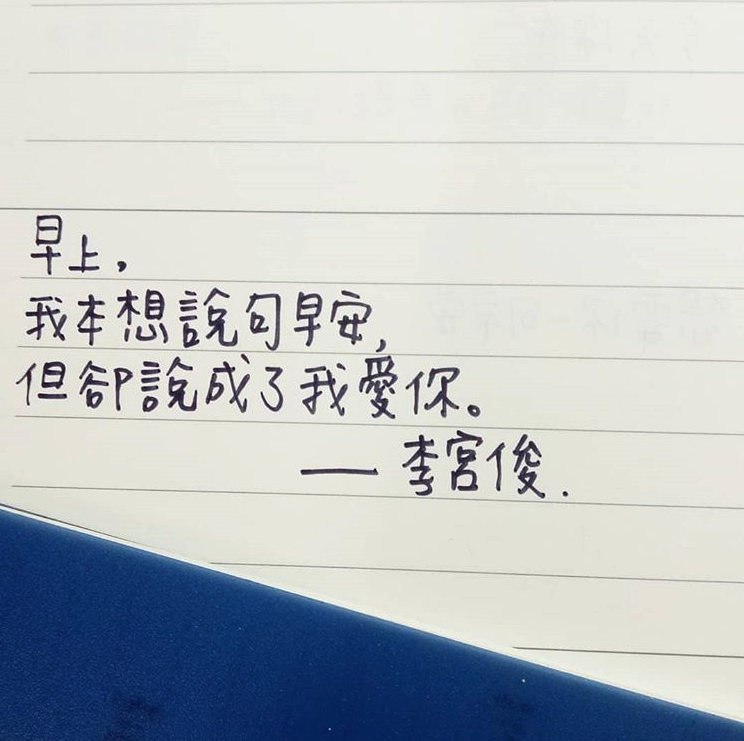 早上，
我本想說句早安,
但卻說成了我愛你。
— 李宮俊.